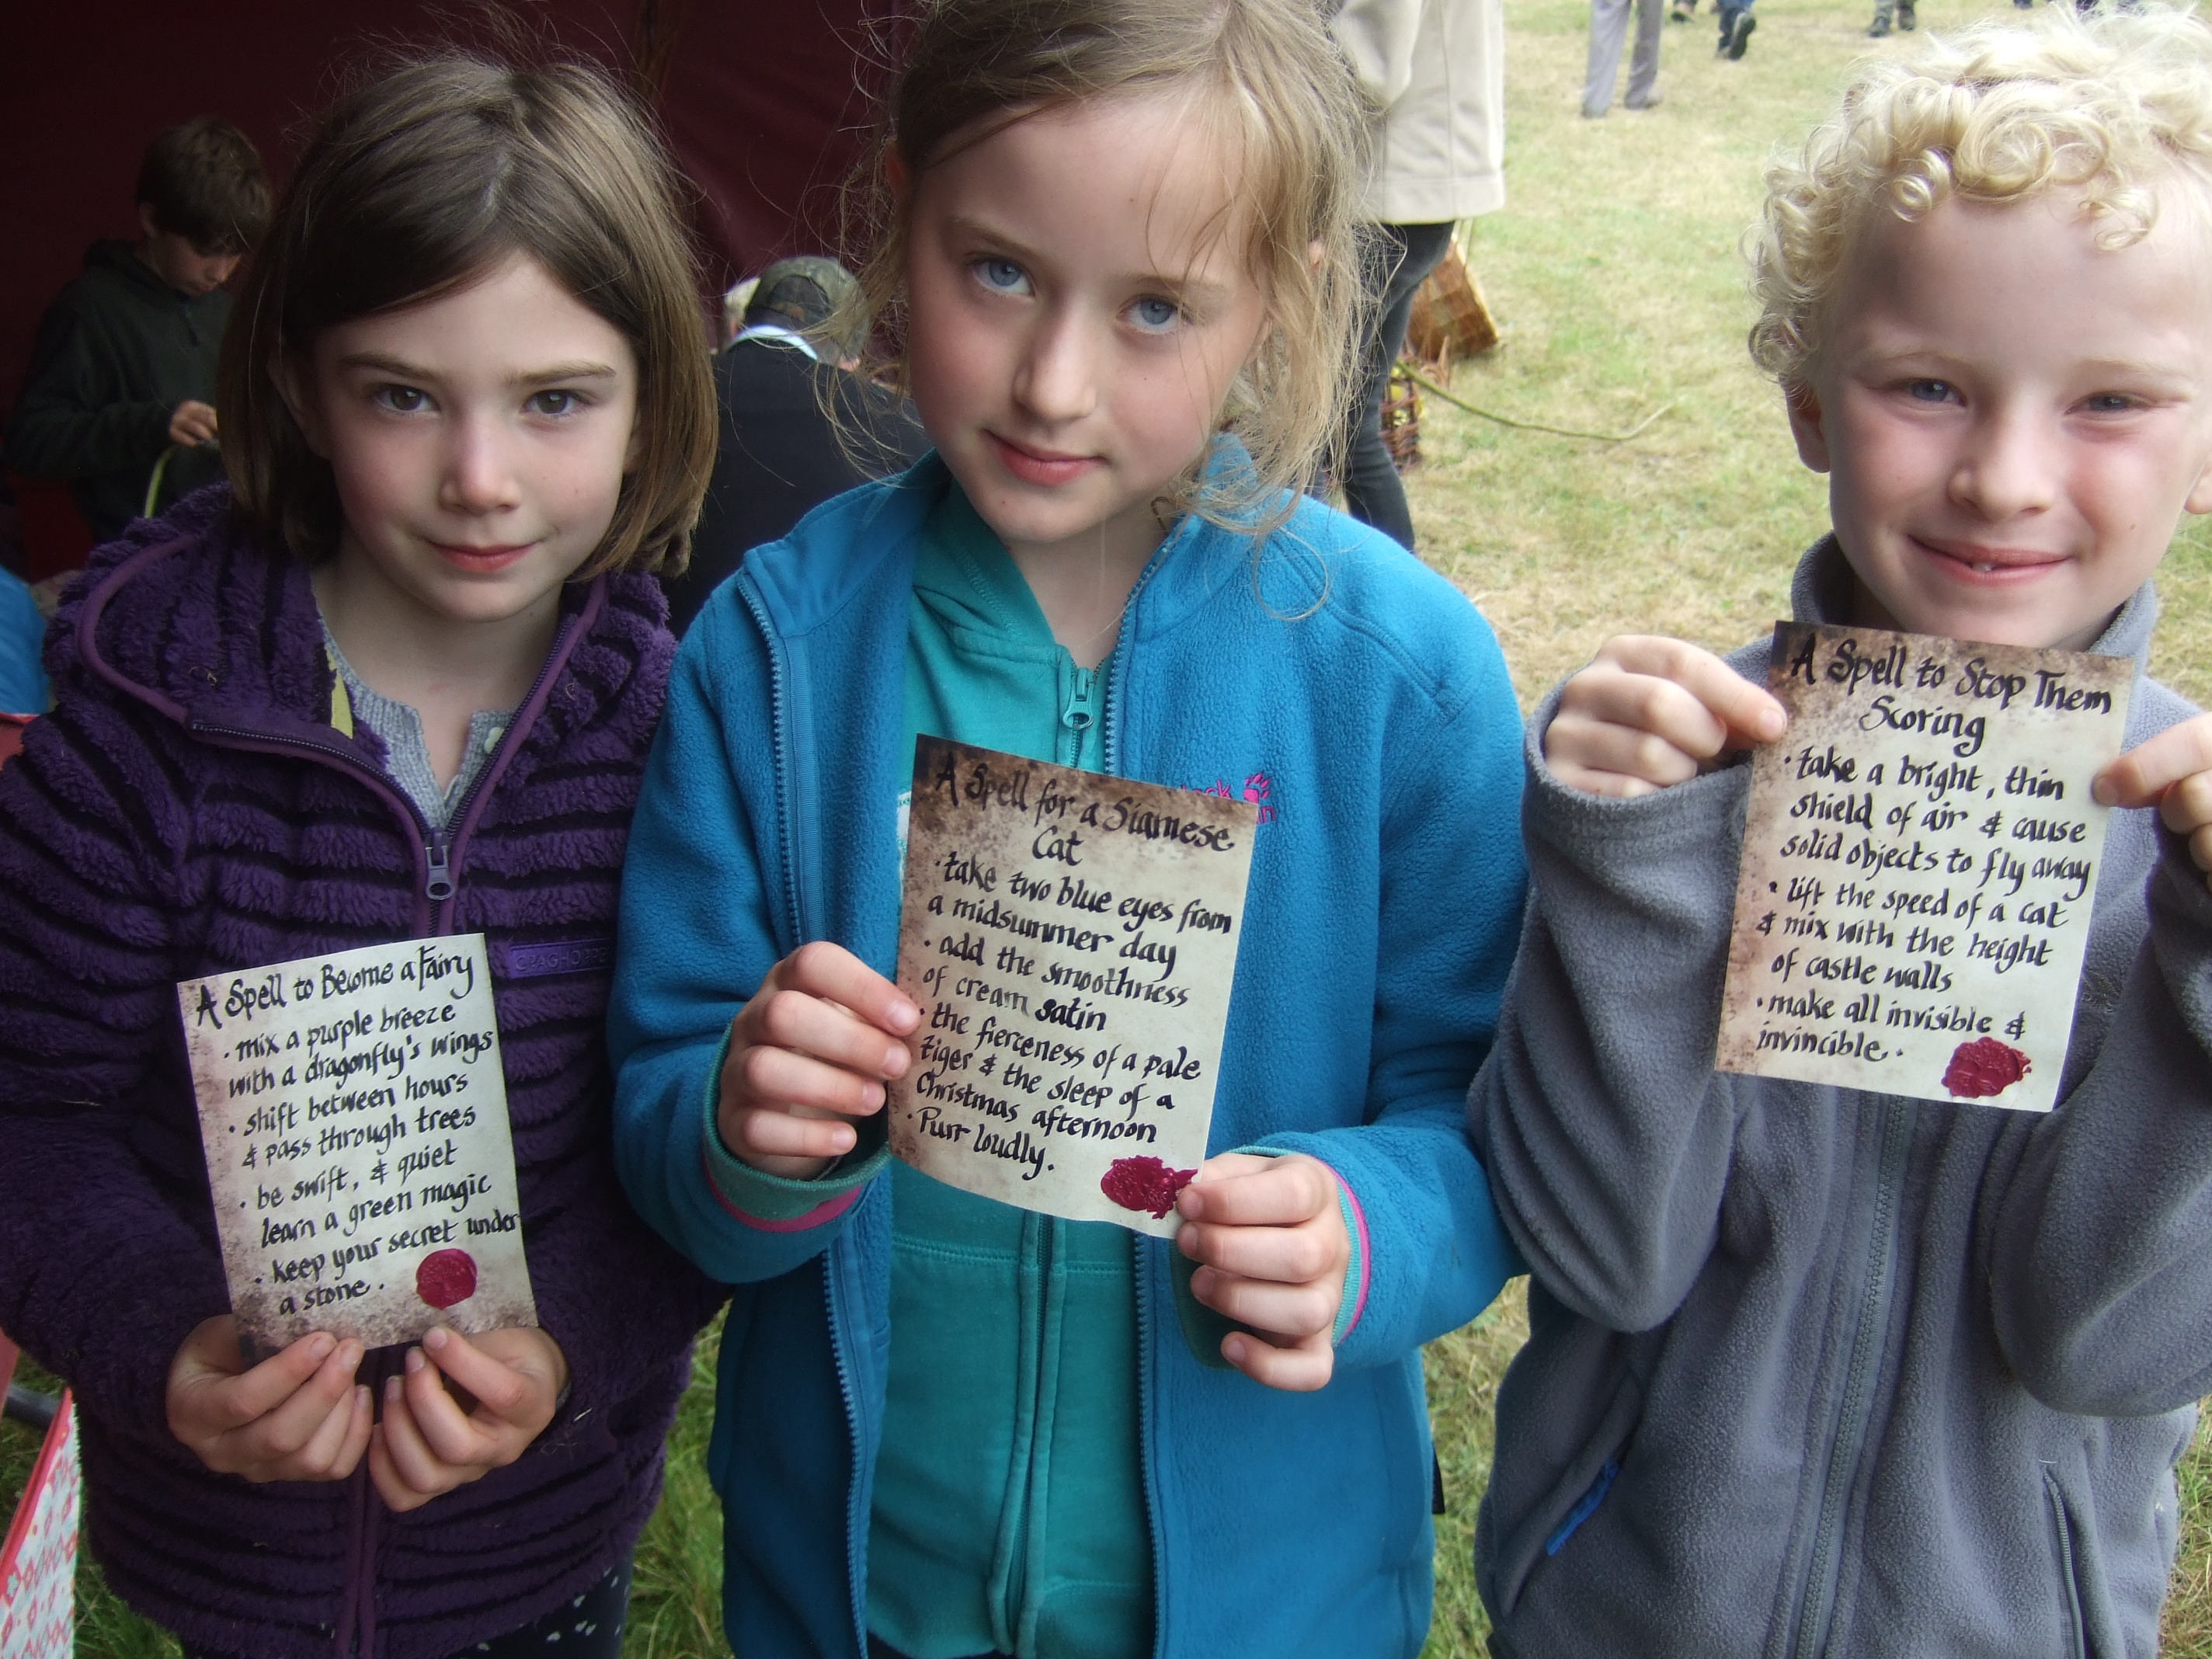 A Spell to Become a Fairy
· mix a purple breeze
with a dragonfly's wings
· shift between hours
& pass through trees
· be swift, & quiet
learn a green magic
· keep your secret under
a stone.
A Spell for a Siamese
Cat
· take two blue eyes from
a midsummer day
· add the smoothness
of cream satin
· the fierceness of a pale
tiger & the sleep of a
Christmas afternoon
· Purr loudly.
A Spell to Stop Them
Scoring
· take a bright, thin
shield of air & cause
solid objects to fly away
· lift the speed of a cat
& mix with the height
of castle walls
· make all invisible &
invincible.